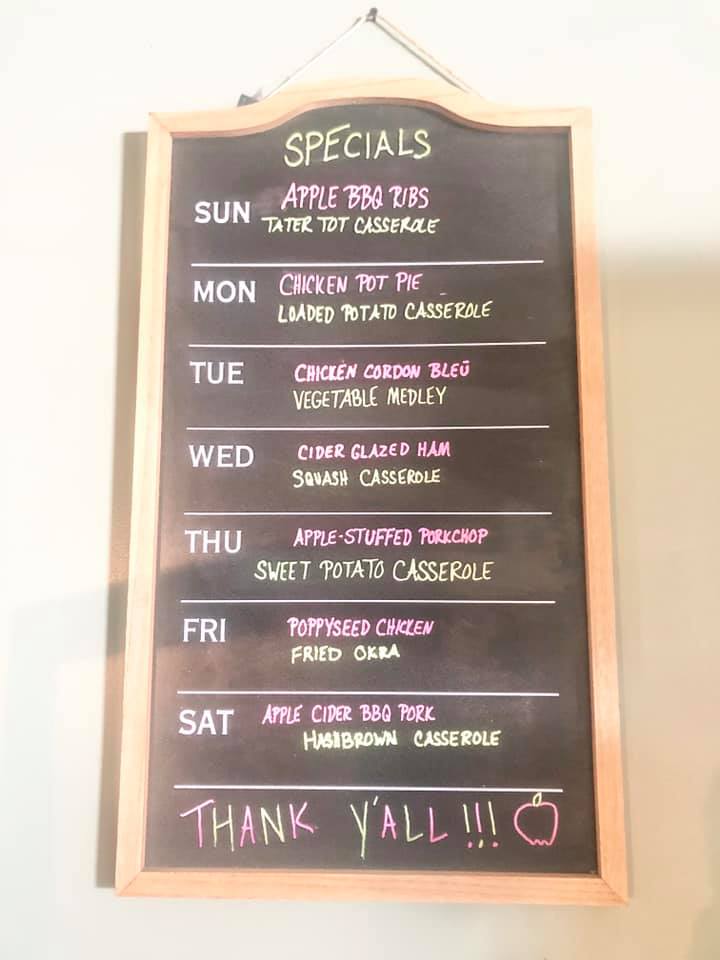 SPECIALS
SUN APPLE BBQ RIBS
TATER TOT CASSEROLE
MON CHICKEN POT PIE
LOADED POTATO CASSEROLE
TUE CHICKEN CORDON BLEU
VEGETABLE MEDLEY
WED CIDER GLAZED HAM
SQUASH CASSEROLE
THU APPLE-STUFFED PORKCHOP
SWEET POTATO CASSEROLE
FRI POPPYSEED CHICKEN
FRIED OKRA
SAT APPLE CIDER BBQ PORK
HASHBROWN CASSEROLE
THANK Y'ALL!!!